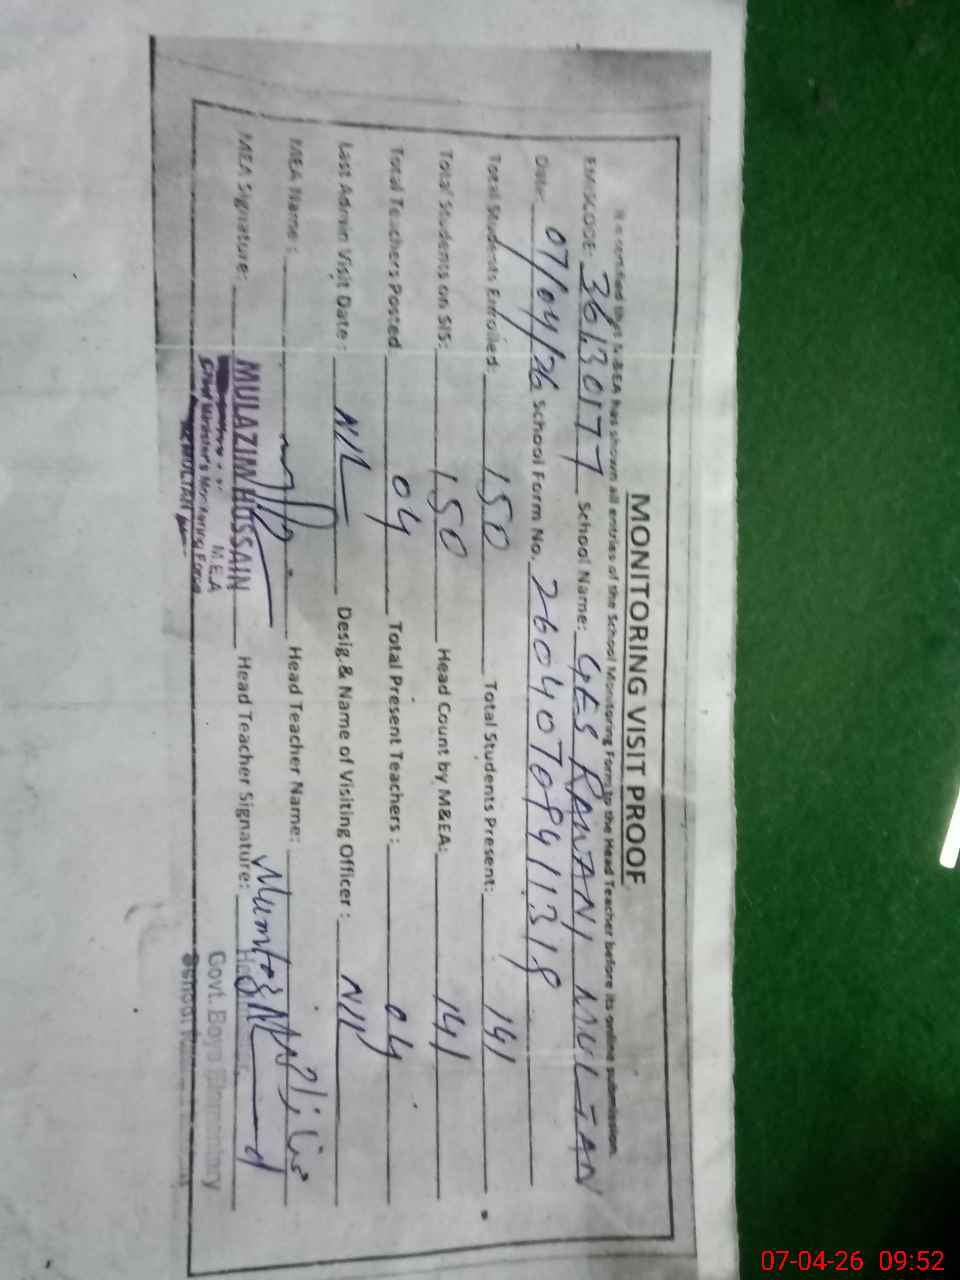 MONITORING VISIT PROOF
It is certified that M&EA has shown all entries of the School Monitoring Form to the Head Teacher before its online submission.
EMISCODE: 36130177 School Name: GES RAWANI MULTAN
Date: 07/04/26 School Form No. 26040709411318
Total Students Enrolled: 150 Total Students Present: 141
Total Students on SIS: 150 Head Count by M&EA: 141
Total Teachers Posted 04 Total Present Teachers: 04
Last Admin Visit Date: NIL Desig.& Name of Visiting Officer: NIL
MEA Name: Head Teacher Name:
MEA Signature: MULAZIM HUSSAIN Head Teacher Signature: Mumtaz
M.E.A
Chief Minister's Monitoring Force
MULTAN
Govt. Boys Elementary
School
07-04-26 09:52